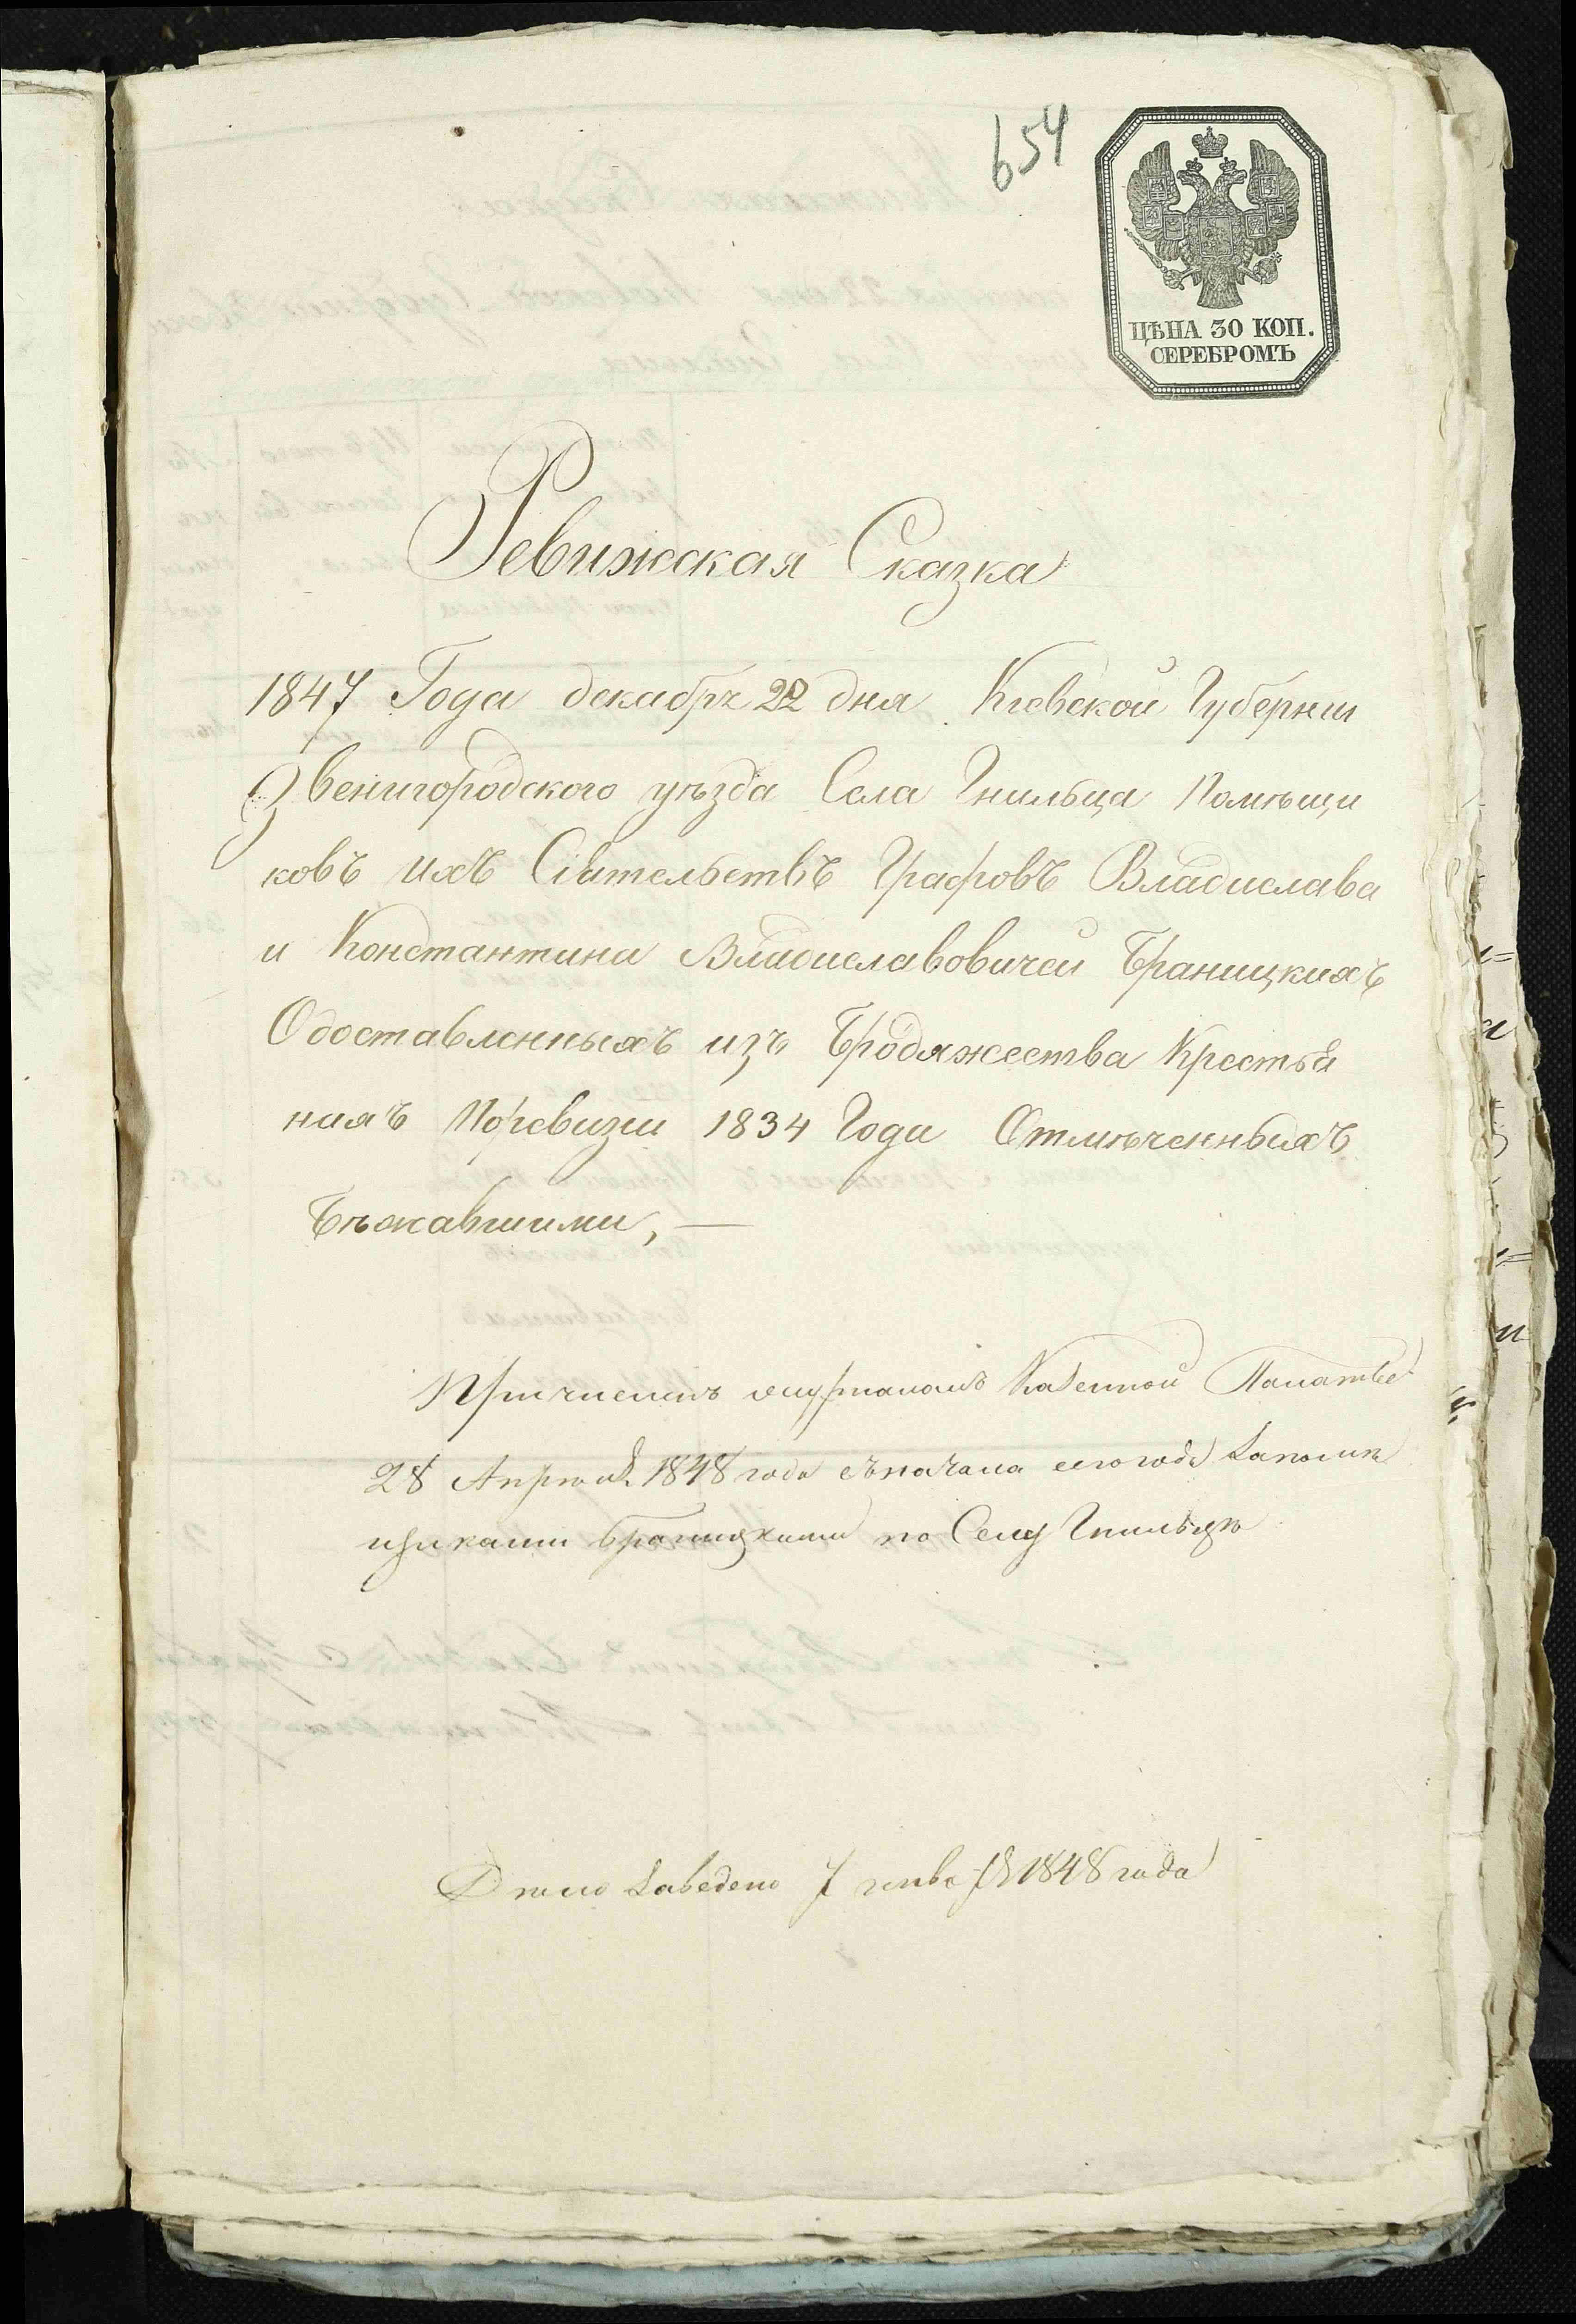 654
ЦѢНА 30 КОП.
СЕРЕБРОМЪ
Ревижская Сказка
1847 Года декабря 22 дня Кіевской Губерніи
Звенигородского уѣзда Села Гнильца Помѣщи
ковъ ихъ Сіятельствъ Графовъ Владислава
и Константина Владиславовичей Браницкихъ
Одоставленныхъ изъ Бродяжества Крестья
няхъ Поревизіи 1834 Года Отмѣченныхъ
Бѣжавшими, —
Причислен журналомъ Казенной Палаты
28 Апрѣля 1848 года съ начала сего года За помѣ
щиками Браницкими по Селу Гнильцѣ
Дѣло Заведено 7 генваря 1848 года